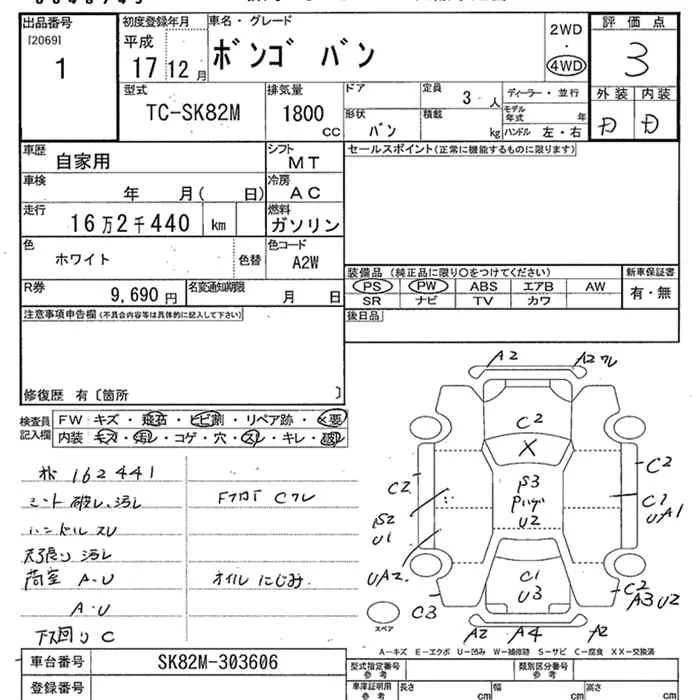 出品番号
[2069]
1
初度登録年月
平成
17 12 月
車名・グレード
ボンゴ バン
2WD
・
4WD
評価点
3
型式
TC-SK82M
排気量
1800
CC
ドア
定員
3 人
ディーラー・並行
モデル年式 年
形状
バン
積載
kg
ハンドル 左・右
外装 内装
D D
車歴
自家用
シフト
MT
車検
年 月( 日)
冷房
AC
走行
16万2千440 km
燃料
ガソリン
色
ホワイト
色替
色コード
A2W
R券
9,690 円
名変通知期限
月 日
セールスポイント(正常に機能するものに限ります)
装備品 (純正品に限り○をつけてください)
PS PW ABS エアB AW
SR ナビ TV カワ
新車保証書
有・無
後日品
注意事項申告欄(不具合内容等は具体的に記入して下さい)
修復歴 有〔箇所 〕
検査員記入欄
FW キズ・飛石・ヒビ割・リペア跡・X要
内装 キズ・汚レ・コゲ・穴・スレ・キレ・破レ
162441
シート破レ、汚レ
ハンドルスレ
天張り汚レ
荷室 A・U
A・U
下回りC
オイルにじみ.
A2
A2
C2
X
C2
C2
S3
U2
C1
UA1
S2
U1
UA2
C1
U3
C2
A3 U2
C3
A2
A4
A2
スペア
A―キズ E―エクボ U―凹み W―補修跡 S―サビ C―腐食 XX―交換済
車台番号
SK82M-303606
登録番号
型式指定番号
参考
類別区分番号
参考
車庫証明用
参考
長さ cm
幅 cm
高さ cm